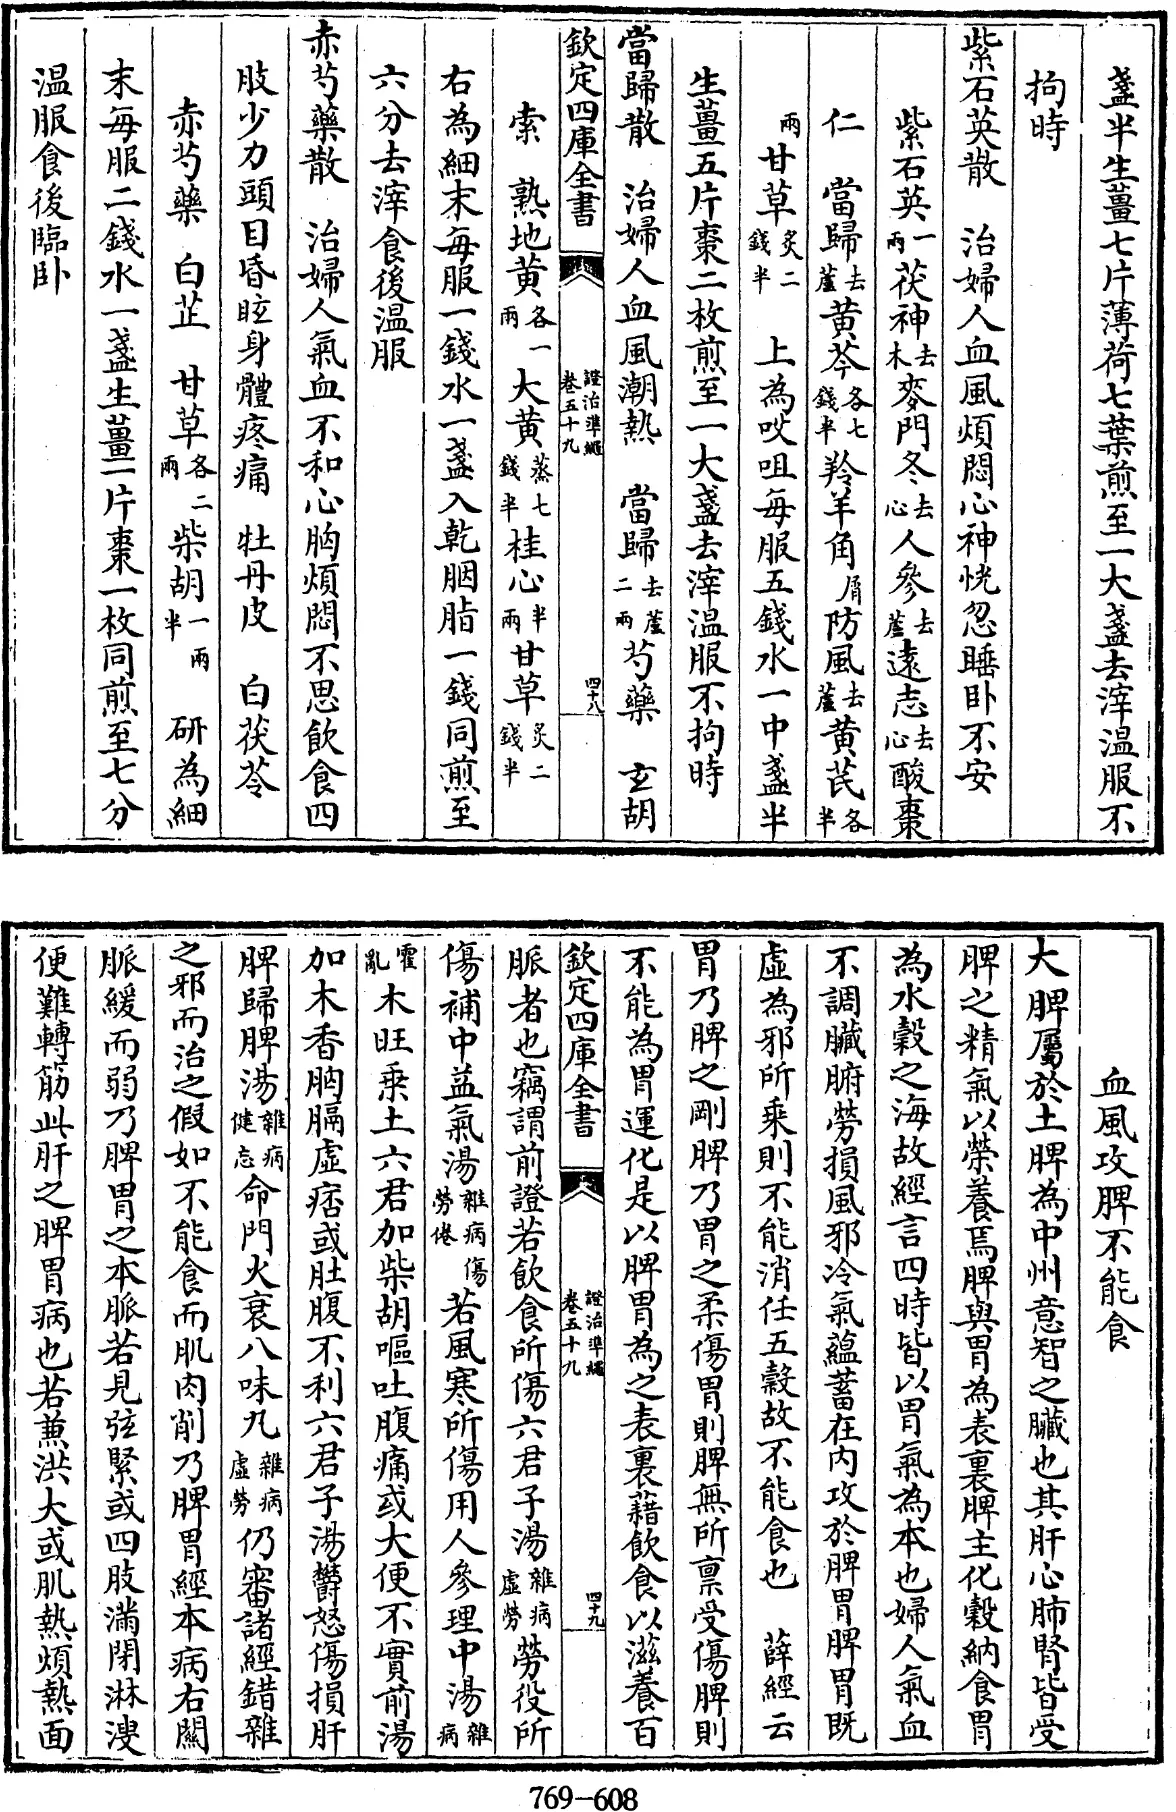 盞半生薑七片薄荷七葉煎至一大盞去滓温服不
拘時
紫石英散　治婦人血風煩悶心神恍忽睡卧不安
紫石英一兩茯神去木麥門冬去心人參去蘆遠志去心酸棗
仁　當歸去蘆黄芩各七錢半羚羊角屑防風去蘆黄芪各半
兩甘草炙二錢半　上為㕮咀每服五錢水一中盞半
生薑五片棗二枚煎至一大盞去滓温服不拘時
當歸散　治婦人血風潮熱　當歸去蘆二兩芍藥　玄胡
欽定四庫全書　證治準繩卷五十九　四十八
索　熟地黄各一兩大黄蒸七錢半桂心半兩甘草炙二錢半
右為細末每服一錢水一盞入乾胭脂一錢同煎至
六分去滓食後温服
赤芍藥散　治婦人氣血不和心胸煩悶不思飲食四
肢少力頭目昏眩身體疼痛　牡丹皮　白茯苓
赤芍藥　白芷　甘草各二兩柴胡一兩半　研為細
末每服二錢水一盞生薑一片棗一枚同煎至七分
温服食後臨卧
血風攻脾不能食
大脾屬於土脾為中州意智之臟也其肝心肺腎皆受
脾之精氣以榮養焉脾與胃為表裏脾主化穀納食胃
為水穀之海故經言四時皆以胃氣為本也婦人氣血
不調臟腑勞損風邪冷氣蘊蓄在内攻於脾胃脾胃既
虛為邪所乘則不能消任五穀故不能食也　薛經云
胃乃脾之剛脾乃胃之柔傷胃則脾無所禀受傷脾則
不能為胃運化是以脾胃為之表裏藉飲食以滋養百
欽定四庫全書　證治準繩卷五十九　四十九
脈者也竊謂前證若飲食所傷六君子湯雜病虛勞勞役所
傷補中益氣湯雜病傷勞倦若風寒所傷用人參理中湯雜病
霍亂木旺乘土六君加柴胡嘔吐腹痛或大便不實前湯
加木香胸膈虛痞或肚腹不利六君子湯欝怒傷損肝
脾歸脾湯雜病健忘命門火衰八味丸雜病虛勞仍審諸經錯雜
之邪而治之假如不能食而肌肉削乃脾胃經本病右關
脈緩而弱乃脾胃之本脈若見弦緊或四肢滿閉淋溲
便難轉筋此肝之脾胃病也若兼洪大或肌熱煩熱面
769-608